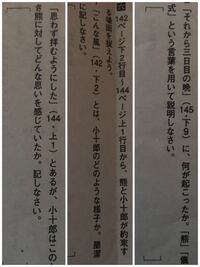 「それから三日目の晩」（145・下9）に、何が起こったか。「熊」「儀
式」という言葉を用いて説明しなさい。
六 142ページ下2行目～144ページ上1行目から、熊と小十郎が約束す
る場面を捉えよう。
「こんな風」（142・下2）とは、小十郎のどのような様子か。簡潔
に記しなさい。
「思わず拝むようにした」（144・上1）とあるが、小十郎はこの
き熊に対してどんな思いを感じていたか。記しなさい。